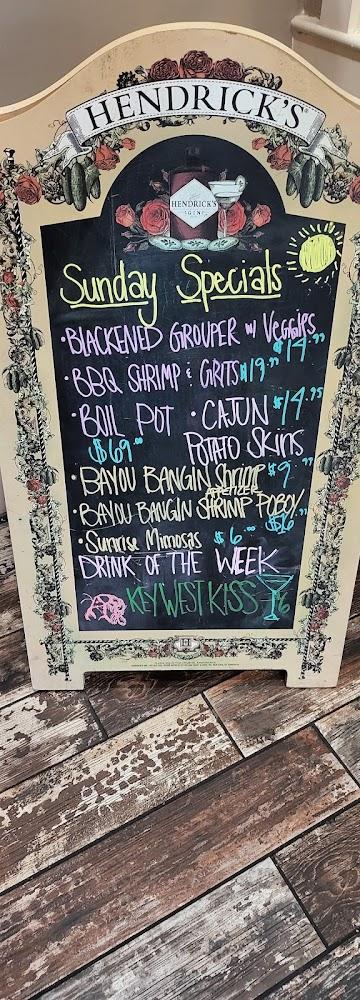 HENDRICK'S
HENDRICK'S
GIN
Sunday Specials
• BLACKENED GROUPER w/ Veggies
$14.99
• BBQ SHRIMP & GRITS $19.99
• BOIL POT • CAJUN $14.95
$69.00 POTATO SKINS
• BAYOU BANGIN Shrimp $9.99
APPETIZER
• BAYOU BANGIN SHRIMP POBOY
$16.99
• Sunrise Mimosas $6.00
DRINK OF THE WEEK
KEY WEST KISS